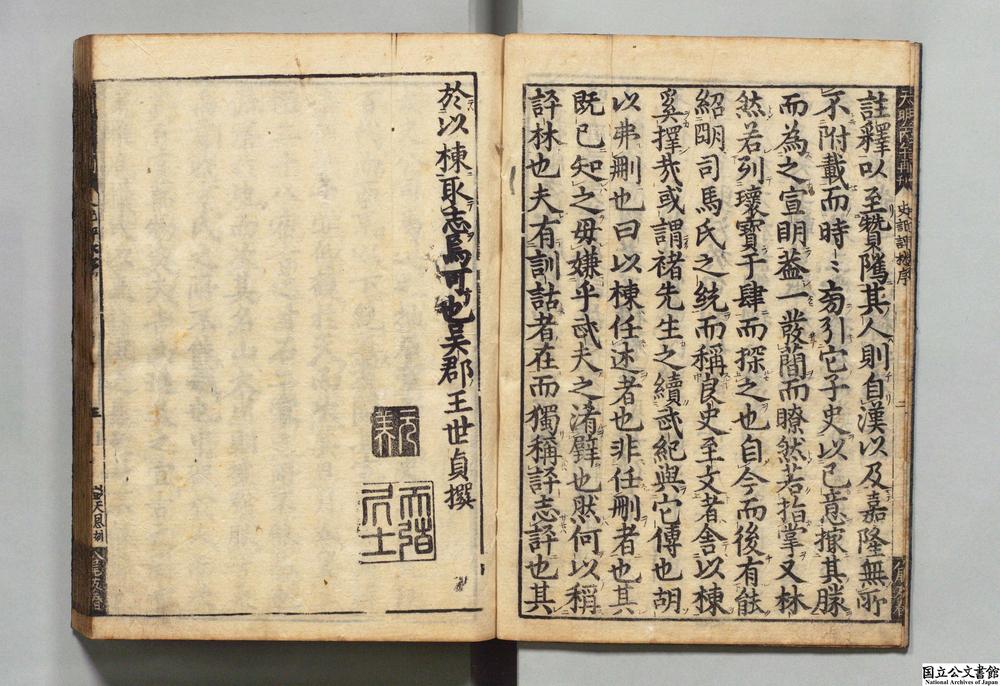 註釋以至贊隲其人則自漢以及嘉隆無所
不附載而時〻旁引它子史以己意撮其勝
而為之宣明盖一發簡而瞭然若指掌又林
然若列瓌寶于肆而探之也自今而後有能
紹明司馬氏之統而稱良史至文者舍以棟
奚擇哉或謂褚先生之續武紀與它傳也胡
以弗刪也曰以棟任述者也非任刪者也其
既已知之毋嫌乎武夫之淆璧也然何以稱
評林也夫有訓詁者在而獨稱評志評也其
於以棟取志焉可也吳郡王世貞撰
元美
天弢居士
史記評林序
二
国立公文書館
National Archives of Japan